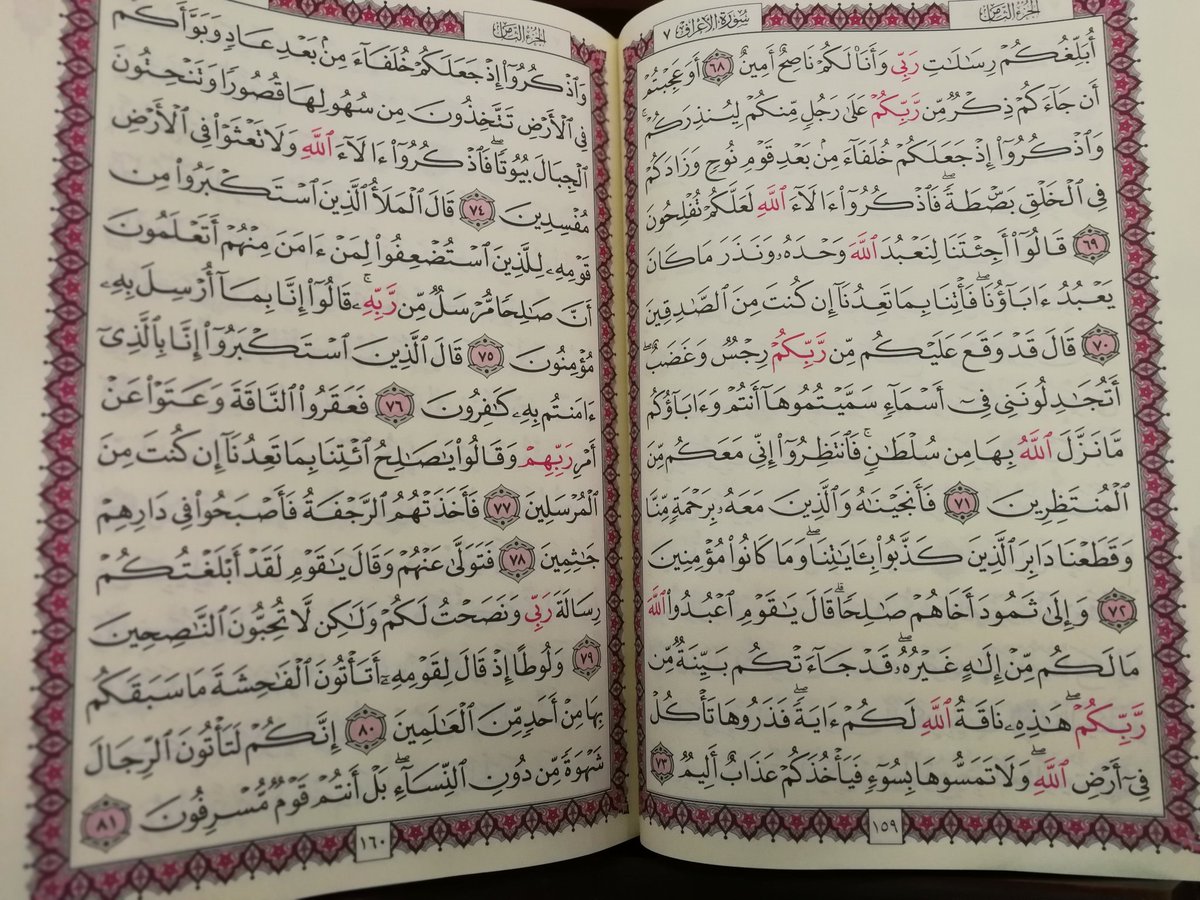 الجزء الثامن
سورة الأعراف ٧
أُبَلِّغُكُمْ رِسَٰلَٰتِ رَبِّى وَأَنَا۠ لَكُمْ نَاصِحٌ أَمِينٌ ٦٨ أَوَعَجِبْتُمْ
أَن جَآءَكُمْ ذِكْرٌ مِّن رَّبِّكُمْ عَلَىٰ رَجُلٍ مِّنكُمْ لِيُنذِرَكُمْ ۚ
وَٱذْكُرُوٓا۟ إِذْ جَعَلَكُمْ خُلَفَآءَ مِنۢ بَعْدِ قَوْمِ نُوحٍ وَزَادَكُمْ
فِى ٱلْخَلْقِ بَصْۜطَةً ۖ فَٱذْكُرُوٓا۟ ءَالَآءَ ٱللَّهِ لَعَلَّكُمْ تُفْلِحُونَ
٦٩ قَالُوٓا۟ أَجِئْتَنَا لِنَعْبُدَ ٱللَّهَ وَحْدَهُۥ وَنَذَرَ مَا كَانَ
يَعْبُدُ ءَابَآؤُنَا ۖ فَأْتِنَا بِمَا تَعِدُنَآ إِن كُنتَ مِنَ ٱلصَّٰدِقِينَ
٧٠ قَالَ قَدْ وَقَعَ عَلَيْكُم مِّن رَّبِّكُمْ رِجْسٌ وَغَضَبٌ ۖ
أَتُجَٰدِلُونَنِى فِىٓ أَسْمَآءٍ سَمَّيْتُمُوهَآ أَنتُمْ وَءَابَآؤُكُم
مَّا نَزَّلَ ٱللَّهُ بِهَا مِن سُلْطَٰنٍ ۚ فَٱنتَظِرُوٓا۟ إِنِّى مَعَكُم مِّنَ
ٱلْمُنتَظِرِينَ ٧١ فَأَنجَيْنَٰهُ وَٱلَّذِينَ مَعَهُۥ بِرَحْمَةٍ مِّنَّا
وَقَطَعْنَا دَابِرَ ٱلَّذِينَ كَذَّبُوا۟ بِـَٔايَٰتِنَا ۖ وَمَا كَانُوا۟ مُؤْمِنِينَ
٧٢ وَإِلَىٰ ثَمُودَ أَخَاهُمْ صَٰلِحًا ۗ قَالَ يَٰقَوْمِ ٱعْبُدُوا۟ ٱللَّهَ
مَا لَكُم مِّنْ إِلَٰهٍ غَيْرُهُۥ ۖ قَدْ جَآءَتْكُم بَيِّنَةٌ مِّن
رَّبِّكُمْ ۖ هَٰذِهِۦ نَاقَةُ ٱللَّهِ لَكُمْ ءَايَةً ۖ فَذَرُوهَا تَأْكُلْ
فِىٓ أَرْضِ ٱللَّهِ ۖ وَلَا تَمَسُّوهَا بِسُوٓءٍ فَيَأْخُذَكُمْ عَذَابٌ أَلِيمٌ ٧٣
١٥٩
الجزء الثامن
وَٱذْكُرُوٓا۟ إِذْ جَعَلَكُمْ خُلَفَآءَ مِنۢ بَعْدِ عَادٍ وَبَوَّأَكُمْ
فِى ٱلْأَرْضِ تَتَّخِذُونَ مِن سُهُولِهَا قُصُورًا وَتَنْحِتُونَ
ٱلْجِبَالَ بُيُوتًا ۖ فَٱذْكُرُوٓا۟ ءَالَآءَ ٱللَّهِ وَلَا تَعْثَوْا۟ فِى ٱلْأَرْضِ
مُفْسِدِينَ ٧٤ قَالَ ٱلْمَلَأُ ٱلَّذِينَ ٱسْتَكْبَرُوا۟ مِن
قَوْمِهِۦ لِلَّذِينَ ٱسْتُضْعِفُوا۟ لِمَنْ ءَامَنَ مِنْهُمْ أَتَعْلَمُونَ
أَنَّ صَٰلِحًا مُّرْسَلٌ مِّن رَّبِّهِۦ ۚ قَالُوٓا۟ إِنَّا بِمَآ أُرْسِلَ بِهِۦ
مُؤْمِنُونَ ٧٥ قَالَ ٱلَّذِينَ ٱسْتَكْبَرُوٓا۟ إِنَّا بِٱلَّذِىٓ
ءَامَنتُم بِهِۦ كَٰفِرُونَ ٧٦ فَعَقَرُوا۟ ٱلنَّاقَةَ وَعَتَوْا۟ عَنْ
أَمْرِ رَبِّهِمْ وَقَالُوا۟ يَٰصَٰلِحُ ٱئْتِنَا بِمَا تَعِدُنَآ إِن كُنتَ مِنَ
ٱلْمُرْسَلِينَ ٧٧ فَأَخَذَتْهُمُ ٱلرَّجْفَةُ فَأَصْبَحُوا۟ فِى دَارِهِمْ
جَٰثِمِينَ ٧٨ فَتَوَلَّىٰ عَنْهُمْ وَقَالَ يَٰقَوْمِ لَقَدْ أَبْلَغْتُكُمْ
رِسَالَةَ رَبِّى وَنَصَحْتُ لَكُمْ وَلَٰكِن لَّا تُحِبُّونَ ٱلنَّٰصِحِينَ
٧٩ وَلُوطًا إِذْ قَالَ لِقَوْمِهِۦٓ أَتَأْتُونَ ٱلْفَٰحِشَةَ مَا سَبَقَكُم
بِهَا مِنْ أَحَدٍ مِّنَ ٱلْعَٰلَمِينَ ٨٠ إِنَّكُمْ لَتَأْتُونَ ٱلرِّجَالَ
شَهْوَةً مِّن دُونِ ٱلنِّسَآءِ ۚ بَلْ أَنتُمْ قَوْمٌ مُّسْرِفُونَ ٨١
١٦٠